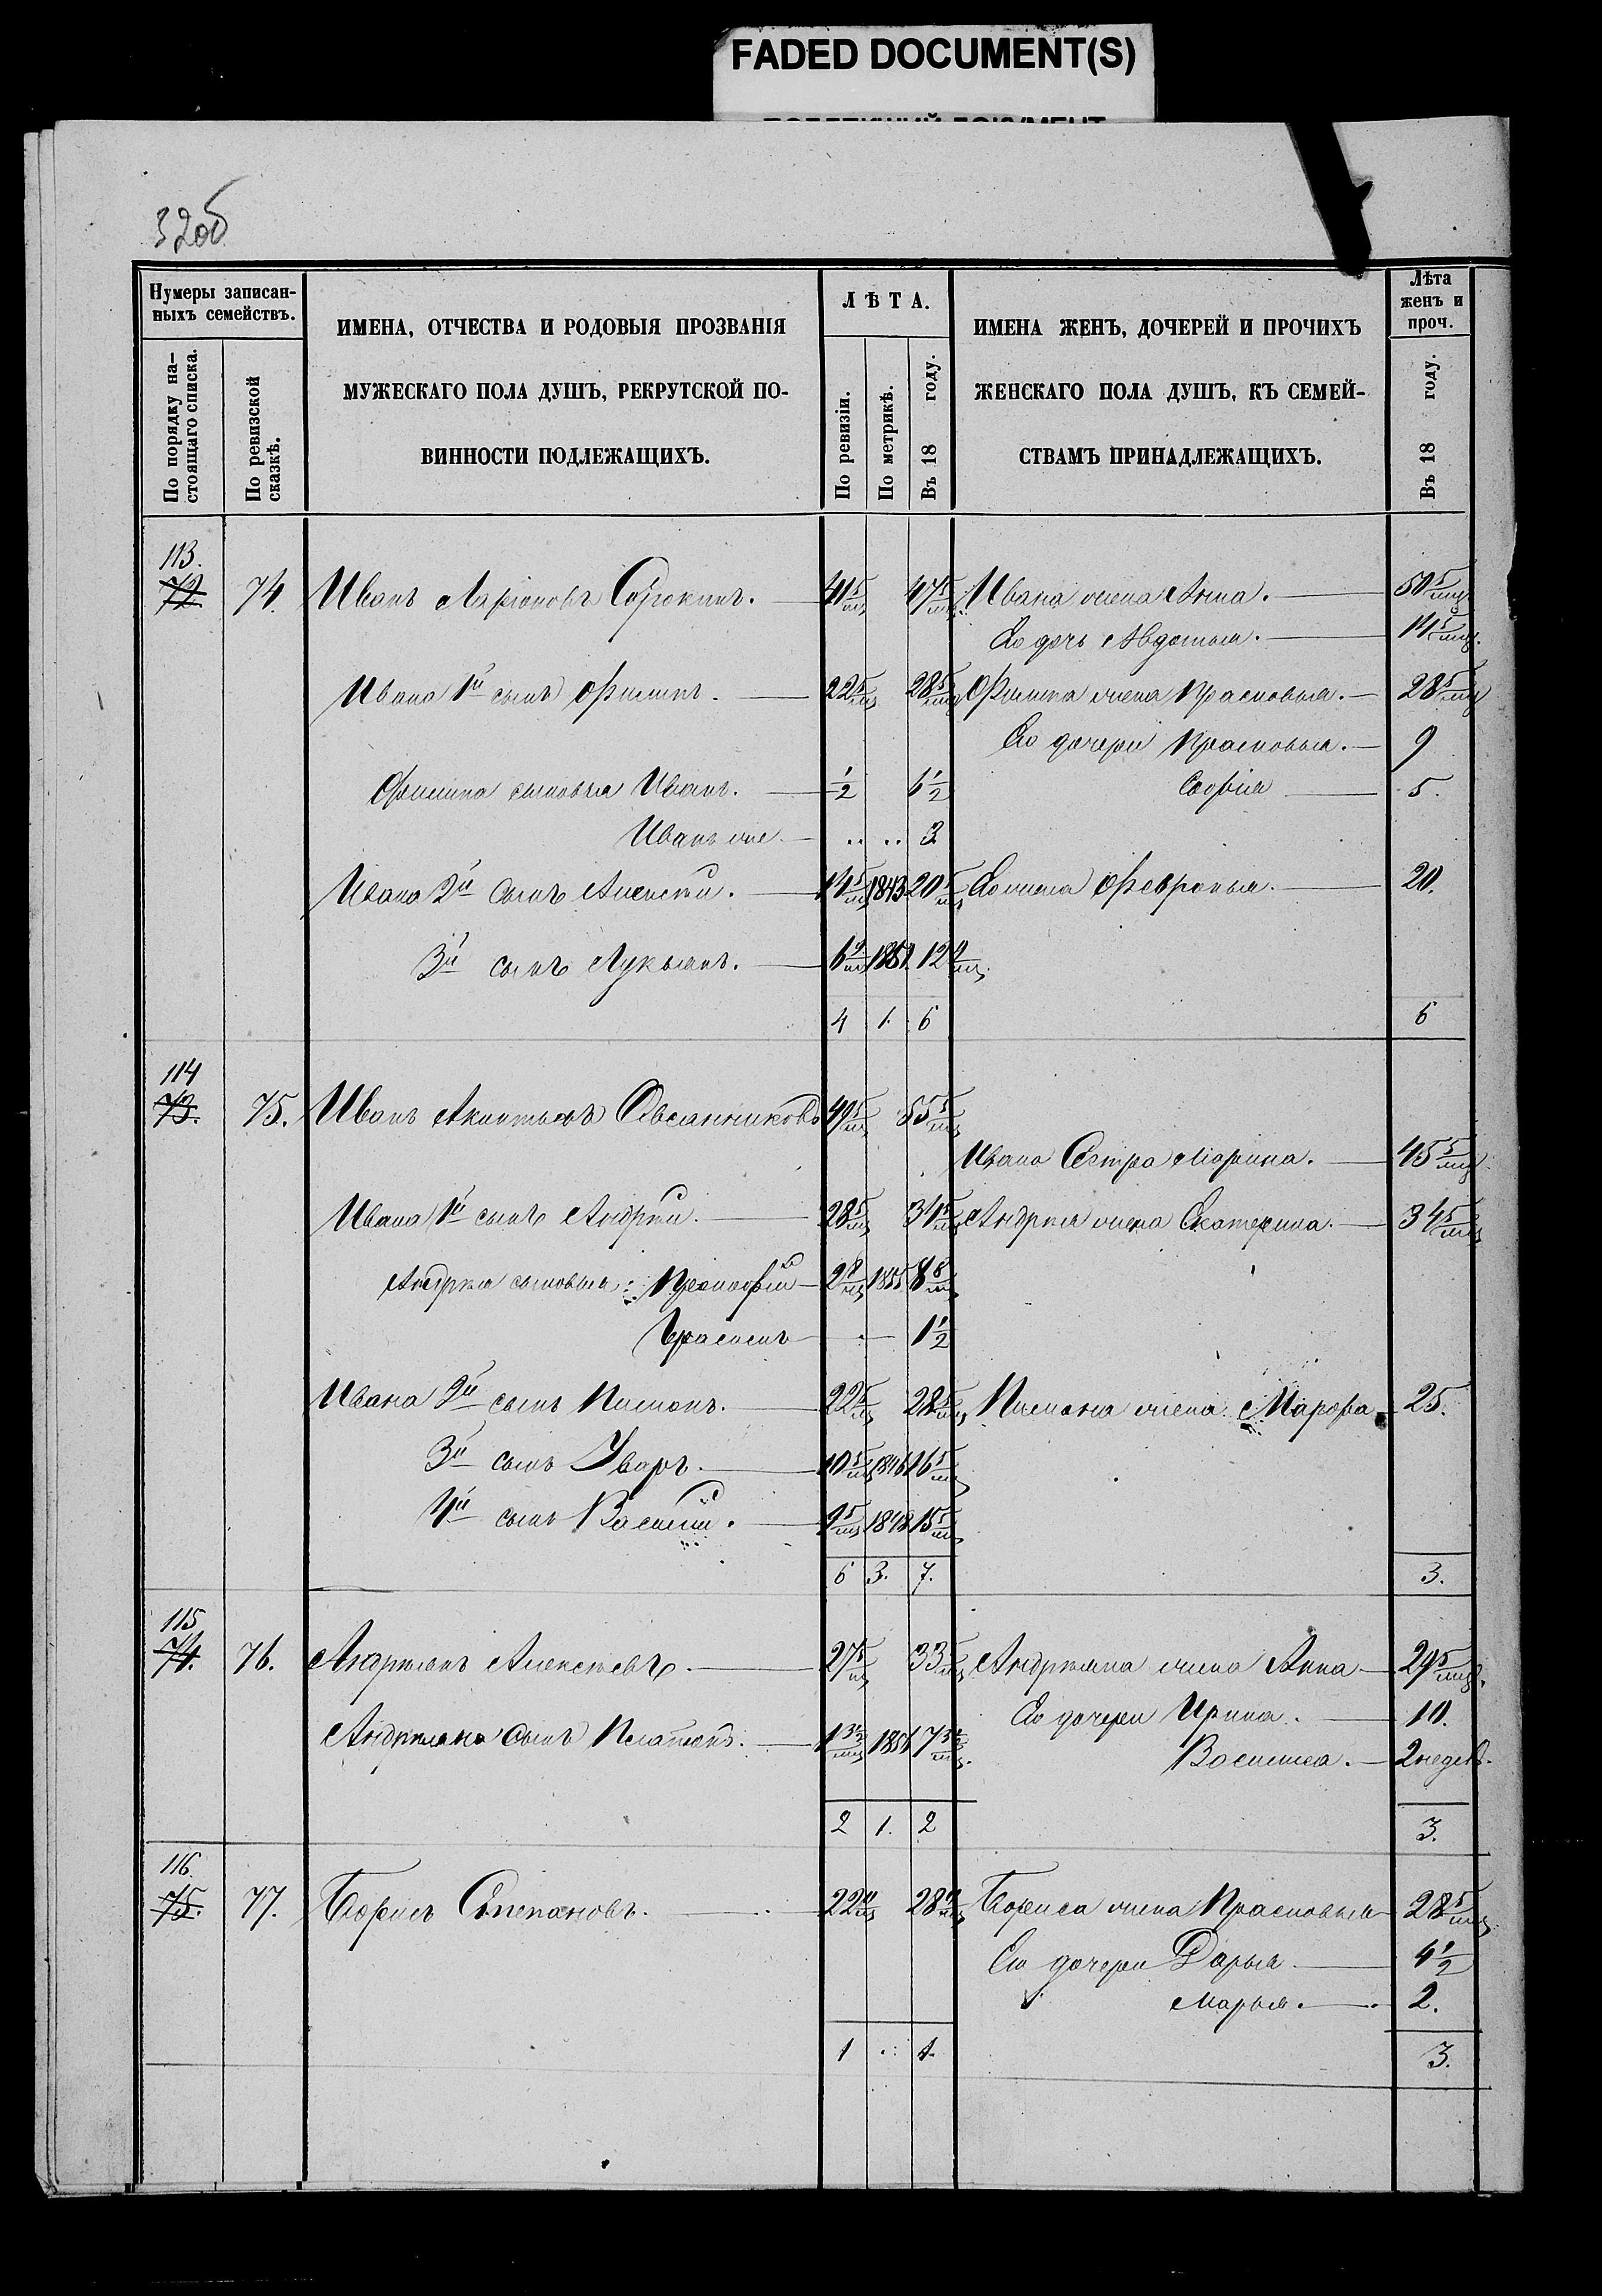 FADED DOCUMENT(S)
32об
Нумеры записан-
ныхъ семействъ.
По порядку на-
стоящаго списка.
По ревизской
сказкѣ.
ИМЕНА, ОТЧЕСТВА И РОДОВЫЯ ПРОЗВАНІЯ
МУЖЕСКАГО ПОЛА ДУШЪ, РЕКРУТСКОЙ ПО-
ВИННОСТИ ПОДЛЕЖАЩИХЪ.
ЛѢТА.
По ревизіи.
По метрикѣ.
Въ 18 году.
ИМЕНА ЖЕНЪ, ДОЧЕРЕЙ И ПРОЧИХЪ
ЖЕНСКАГО ПОЛА ДУШЪ, КЪ СЕМЕЙ-
СТВАМЪ ПРИНАДЛЕЖАЩИХЪ.
Лѣта
женъ и
проч.
Въ 18 году.
113.
72 74. Иванъ Ларіоновъ Сорокинъ. 41 5/мц 47 5/мц Ивана жена Анна. 50 5/мц
Его дочь Авдотья. 14 5/мц.
Ивана 1й сынъ Филипъ. 22 5/мц 28 5/мц Филипа жена Прасковья. 28 5/мц
Его дочери Прасковья. 9
Филипа сыновья Иванъ. 1/2 6 1/2 Софія 5.
Иванъ же 3
Ивана 2й сынъ Алексѣй. 14 5/мц 1843 20 5/мц Его жена Февронья. 20.
3й сынъ Лукьянъ. 6 4/мц 1851 12 4/мц.
4 1. 6 6
114
73. 75. Иванъ Овсянниковъ 49 5/мц 55 5/мц
Ивана Сестра Марина. 45 5/мц
Ивана 1й сынъ Андрей. 28 5/мц 34 5/мц Андрея жена Екатерина. 34 5/мц
Андрея сыновья: Прокофій 2 8/мц 1855 8 8/мц
Герасимъ 1 1/2
Ивана 2й сынъ Пименъ. 22 5/мц 28 5/мц Пимена жена Марфа 25.
3й сынъ Уваръ. 10 5/мц 1846 16 5/мц
4й сынъ Василій. 9 5/мц 1848 15 5/мц
6 3. 7. 3.
115
74. 76. Андреянъ Алексѣевъ. 27 5/мц 33 5/мц Андреяна жена Анна 29 5/мц.
Его дочери Ирина. 10.
Андреяна сынъ Платонъ. 1 3 1/2/мц 185 7 3 1/2/мц.
Василиса. 2 недел.
2 1. 2 3.
116.
75. 77. Борисъ Степановъ. 22 28 Бориса жена Прасковья 28 5/мц
Его дочери Дарья 4 1/2
Марья. 2.
1 1. 3.